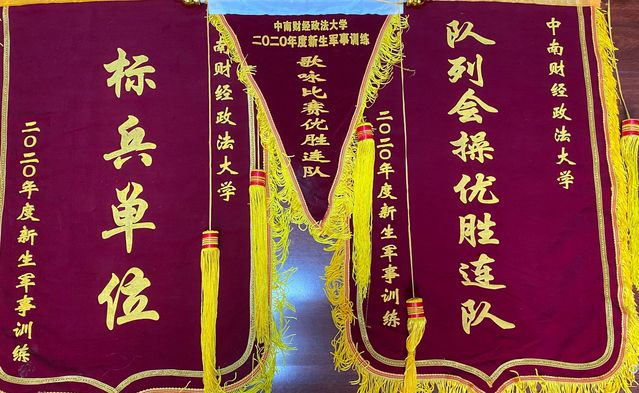 中南财经政法大学
队列会操优胜连队
二〇二〇年度新生军事训练
中南财经政法大学
二〇二〇年度新生军事训练
歌咏比赛优胜连队
南财经政法大学
标兵单位
二〇二〇年度新生军事训练